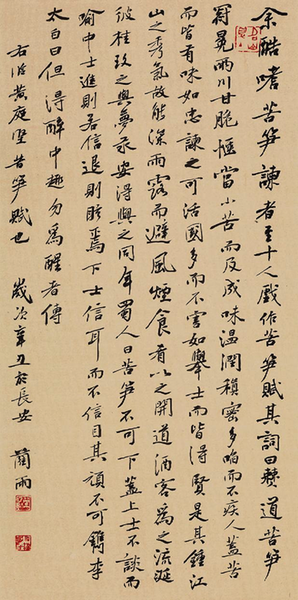 余酷嗜苦笋諫者至十人戲作苦笋賦其詞曰僰道苦笋
冠冕兩川甘脆惬當小苦而反成味温潤稹密多啗而不疾人蓋苦
而皆有味如忠諫之可活國多而不害如舉士而皆得賢是其鍾江
山之秀氣故能深雨露而避風煙食肴以之開道酒客為之流涎
彼桂玫之與夢永安得與之同年蜀人曰苦笋不可下蓋上士不談而
喻中士進則若信退則眩焉下士信耳而不信目其頑不可鐫李
太白曰但得醉中趣勿為醒者傳
右黄庭堅苦笋賦也 歲次辛丑於長安 蘭雨